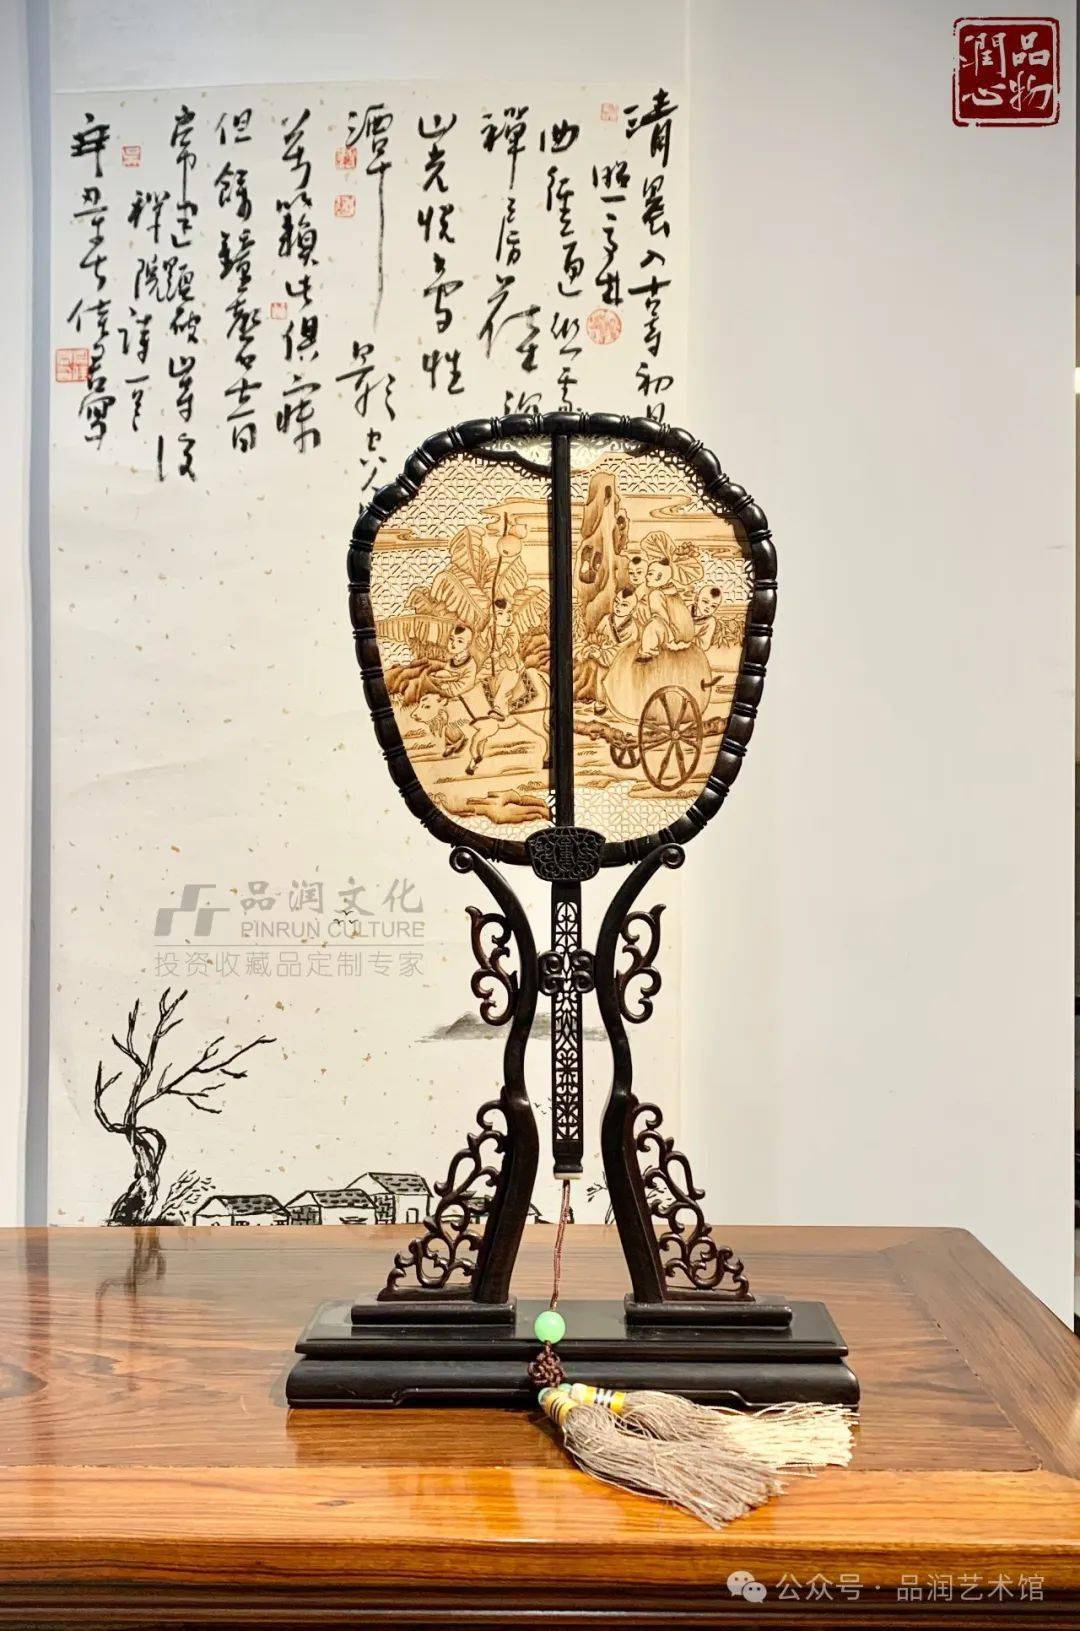 品物
潤心
清晨入古寺初日
照高林
曲徑通幽處
禪房花木深
山光悅鳥性
潭影空人
萬籟此俱寂
但餘鐘磬音
常建題破山寺後
禪院詩一首
辛丑
品润文化
PINRUN CULTURE
投资收藏品定制专家
公众号 · 品润艺术馆